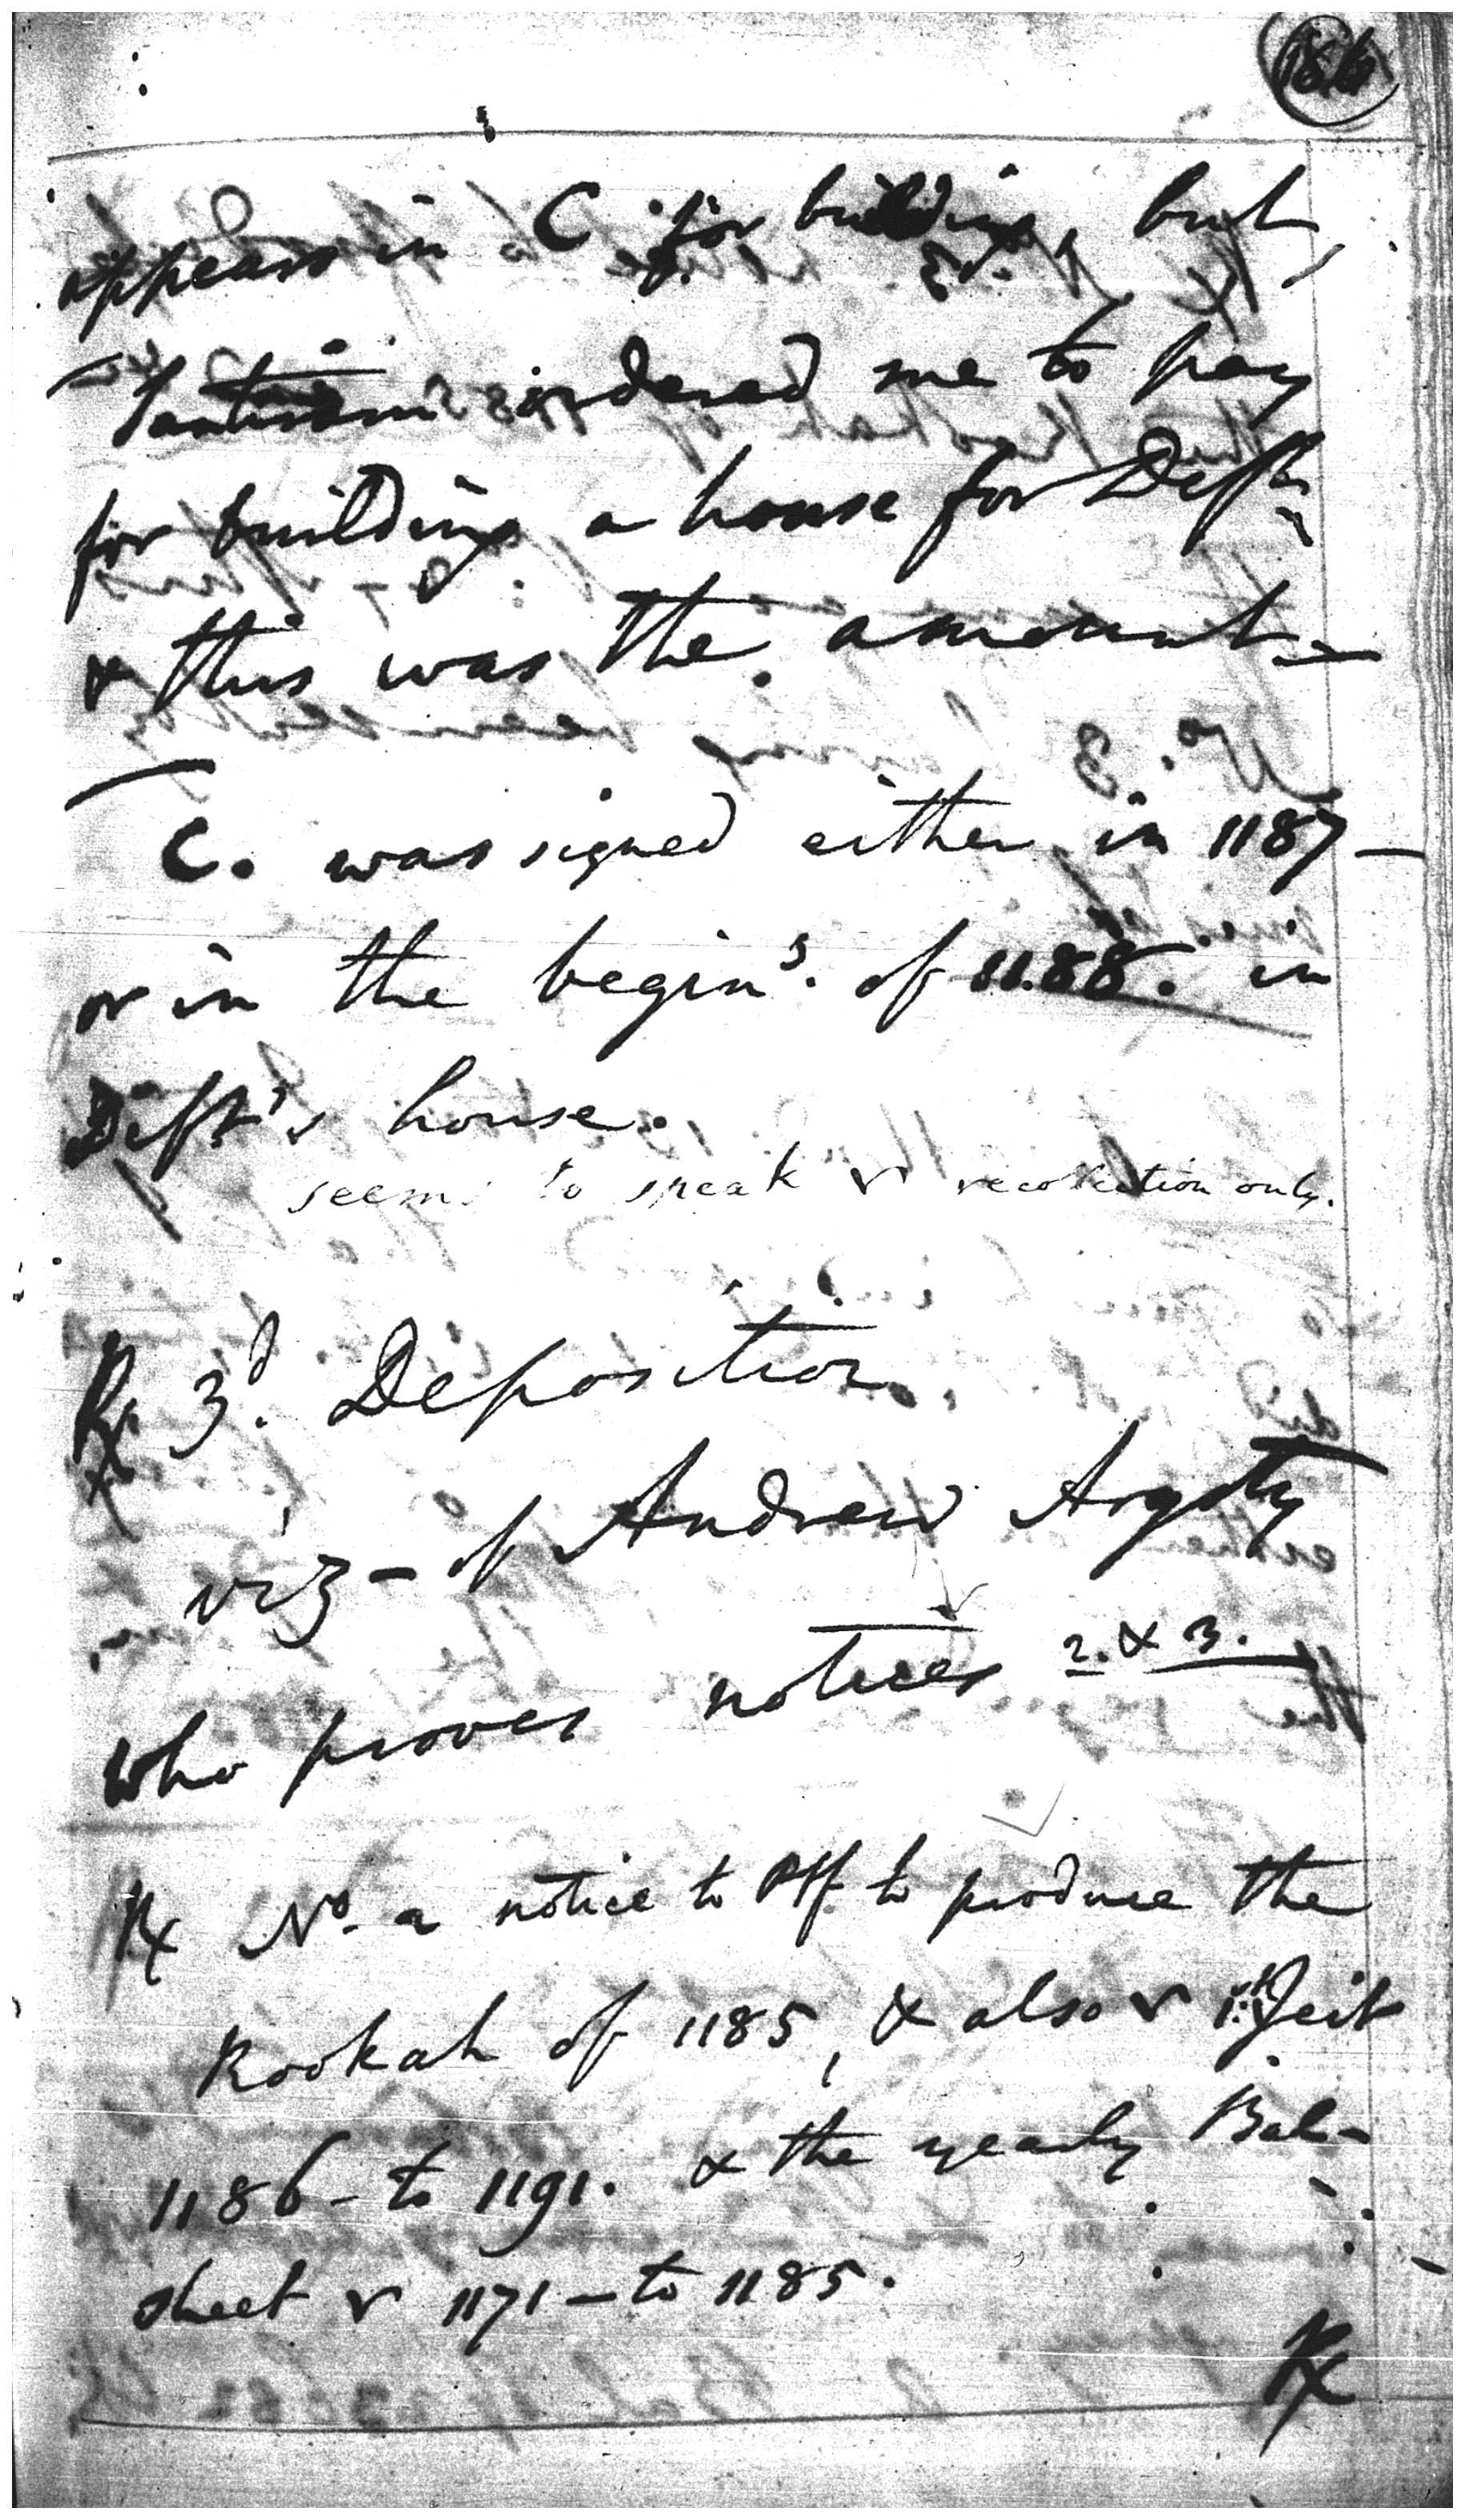 appears in C for building, but
ordered me to pay
for building a house for Deft.
& this was the amount -
C. was signed either in 1187 -
or in the begin.g of 1188. in
Deft's house.
seems to speak recollection only.
Rx 3d. Deposition
viz - of Andrew
who proves notices 2. & 3.
Rx No. 2 notice to Plff to produce the
Rookah of 1185, & also
1186 - to 1191. & the yearly Bal-
sheet 1171 - to 1185.
Rx